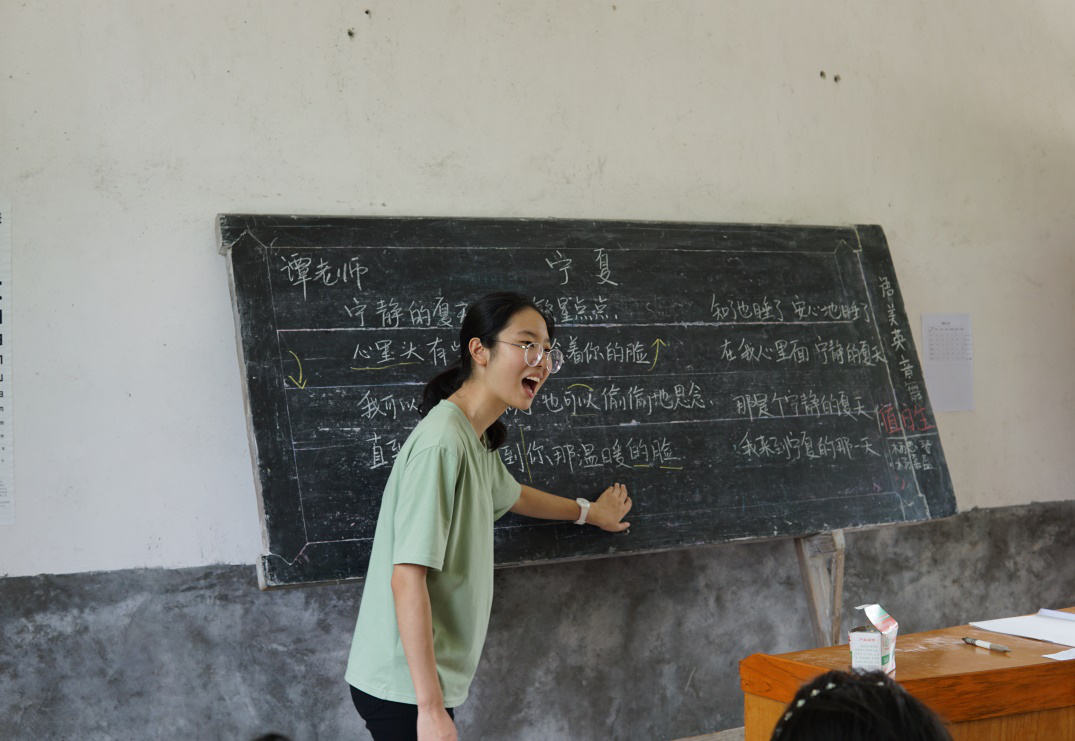 谭老师
宁夏
宁静的夏 繁星点点
心里头有 着你的脸
我可以 也可以偷偷地思念
直到 到你那温暖的脸
知了也睡了 安心地睡了
在我心里面 宁静的夏天
那是个宁静的夏天
我来到宁夏的那一天
语美英音舞
值日生